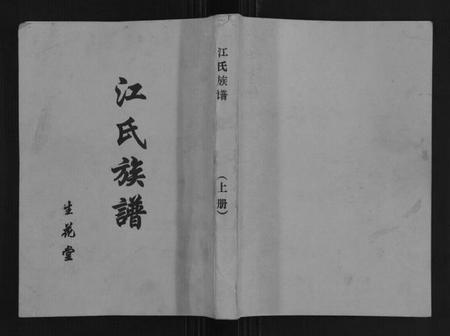 江氏族譜
生花堂
江氏族谱
（上册）